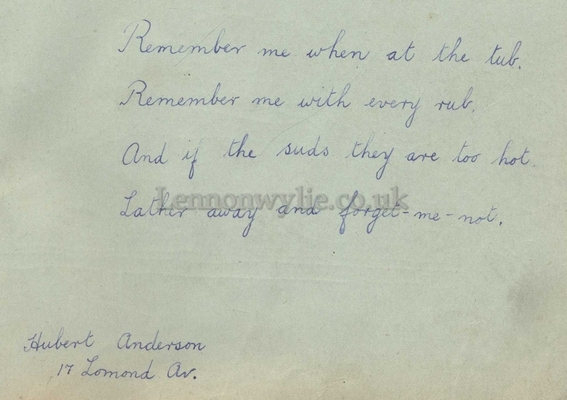 Remember me when at the tub.
Remember me with every rub.
And if the suds they are too hot.
Lennonwylie.co.uk
Lather away and forget-me-not.
Hubert Anderson
17 Lomond Av.